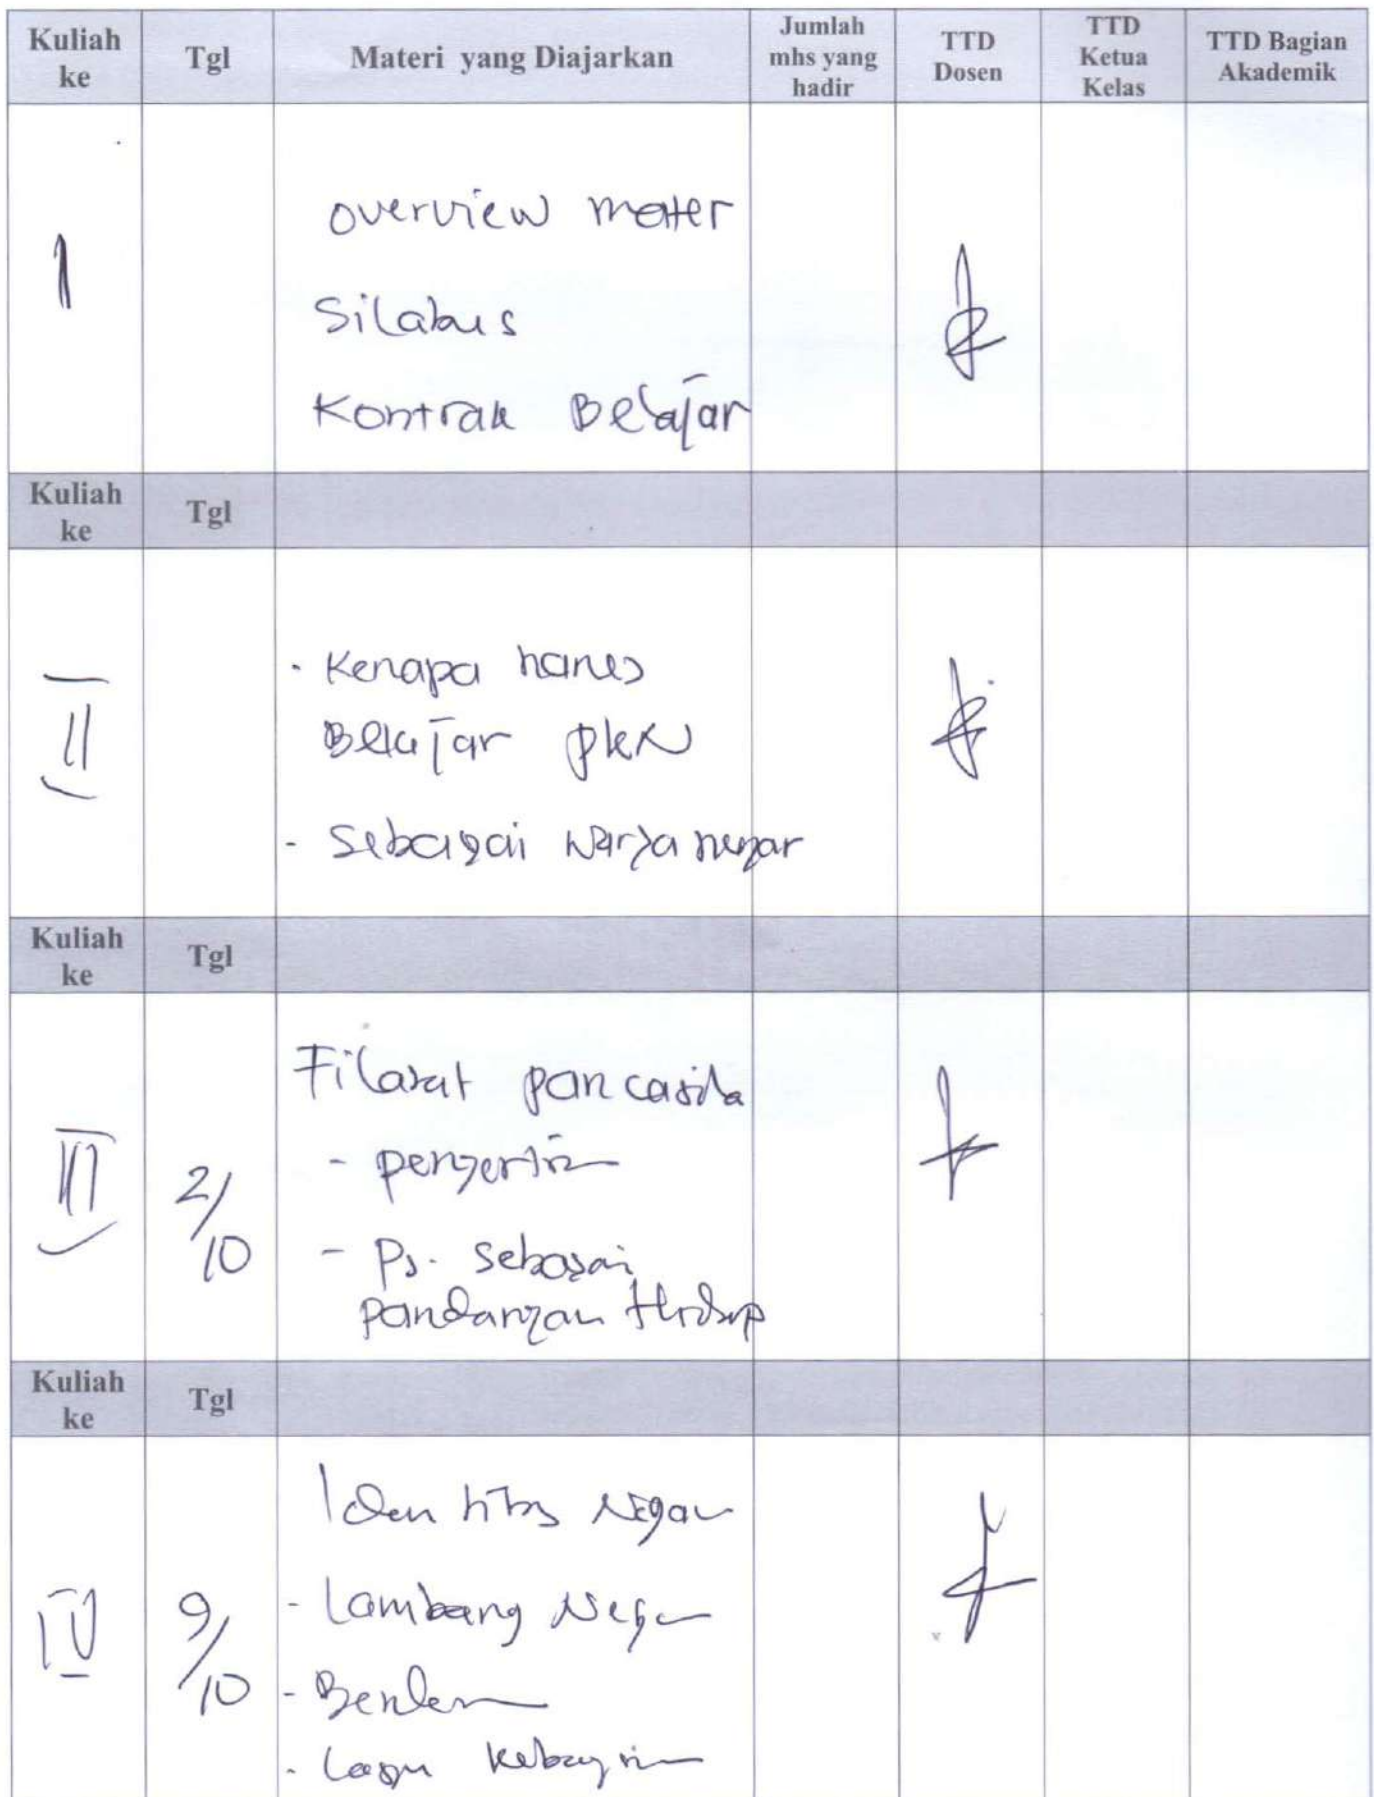 Kuliah ke Tgl Materi yang Diajarkan Jumlah mhs yang hadir TTD Dosen TTD Ketua Kelas TTD Bagian Akademik
I
overview mater
Silabus
Kontrak Belajar
Kuliah ke Tgl
II
- Kenapa harus
Belajar pkN
- Sebagai warga negar
Kuliah ke Tgl
III 2/10
Filasat pancasila
- pengertian
- Ps. sebagai
pandangan Hidup
Kuliah ke Tgl
IV 9/10
Identitas Negara
- Lambang Negara
- Bendera
- Lagu kebangsaan